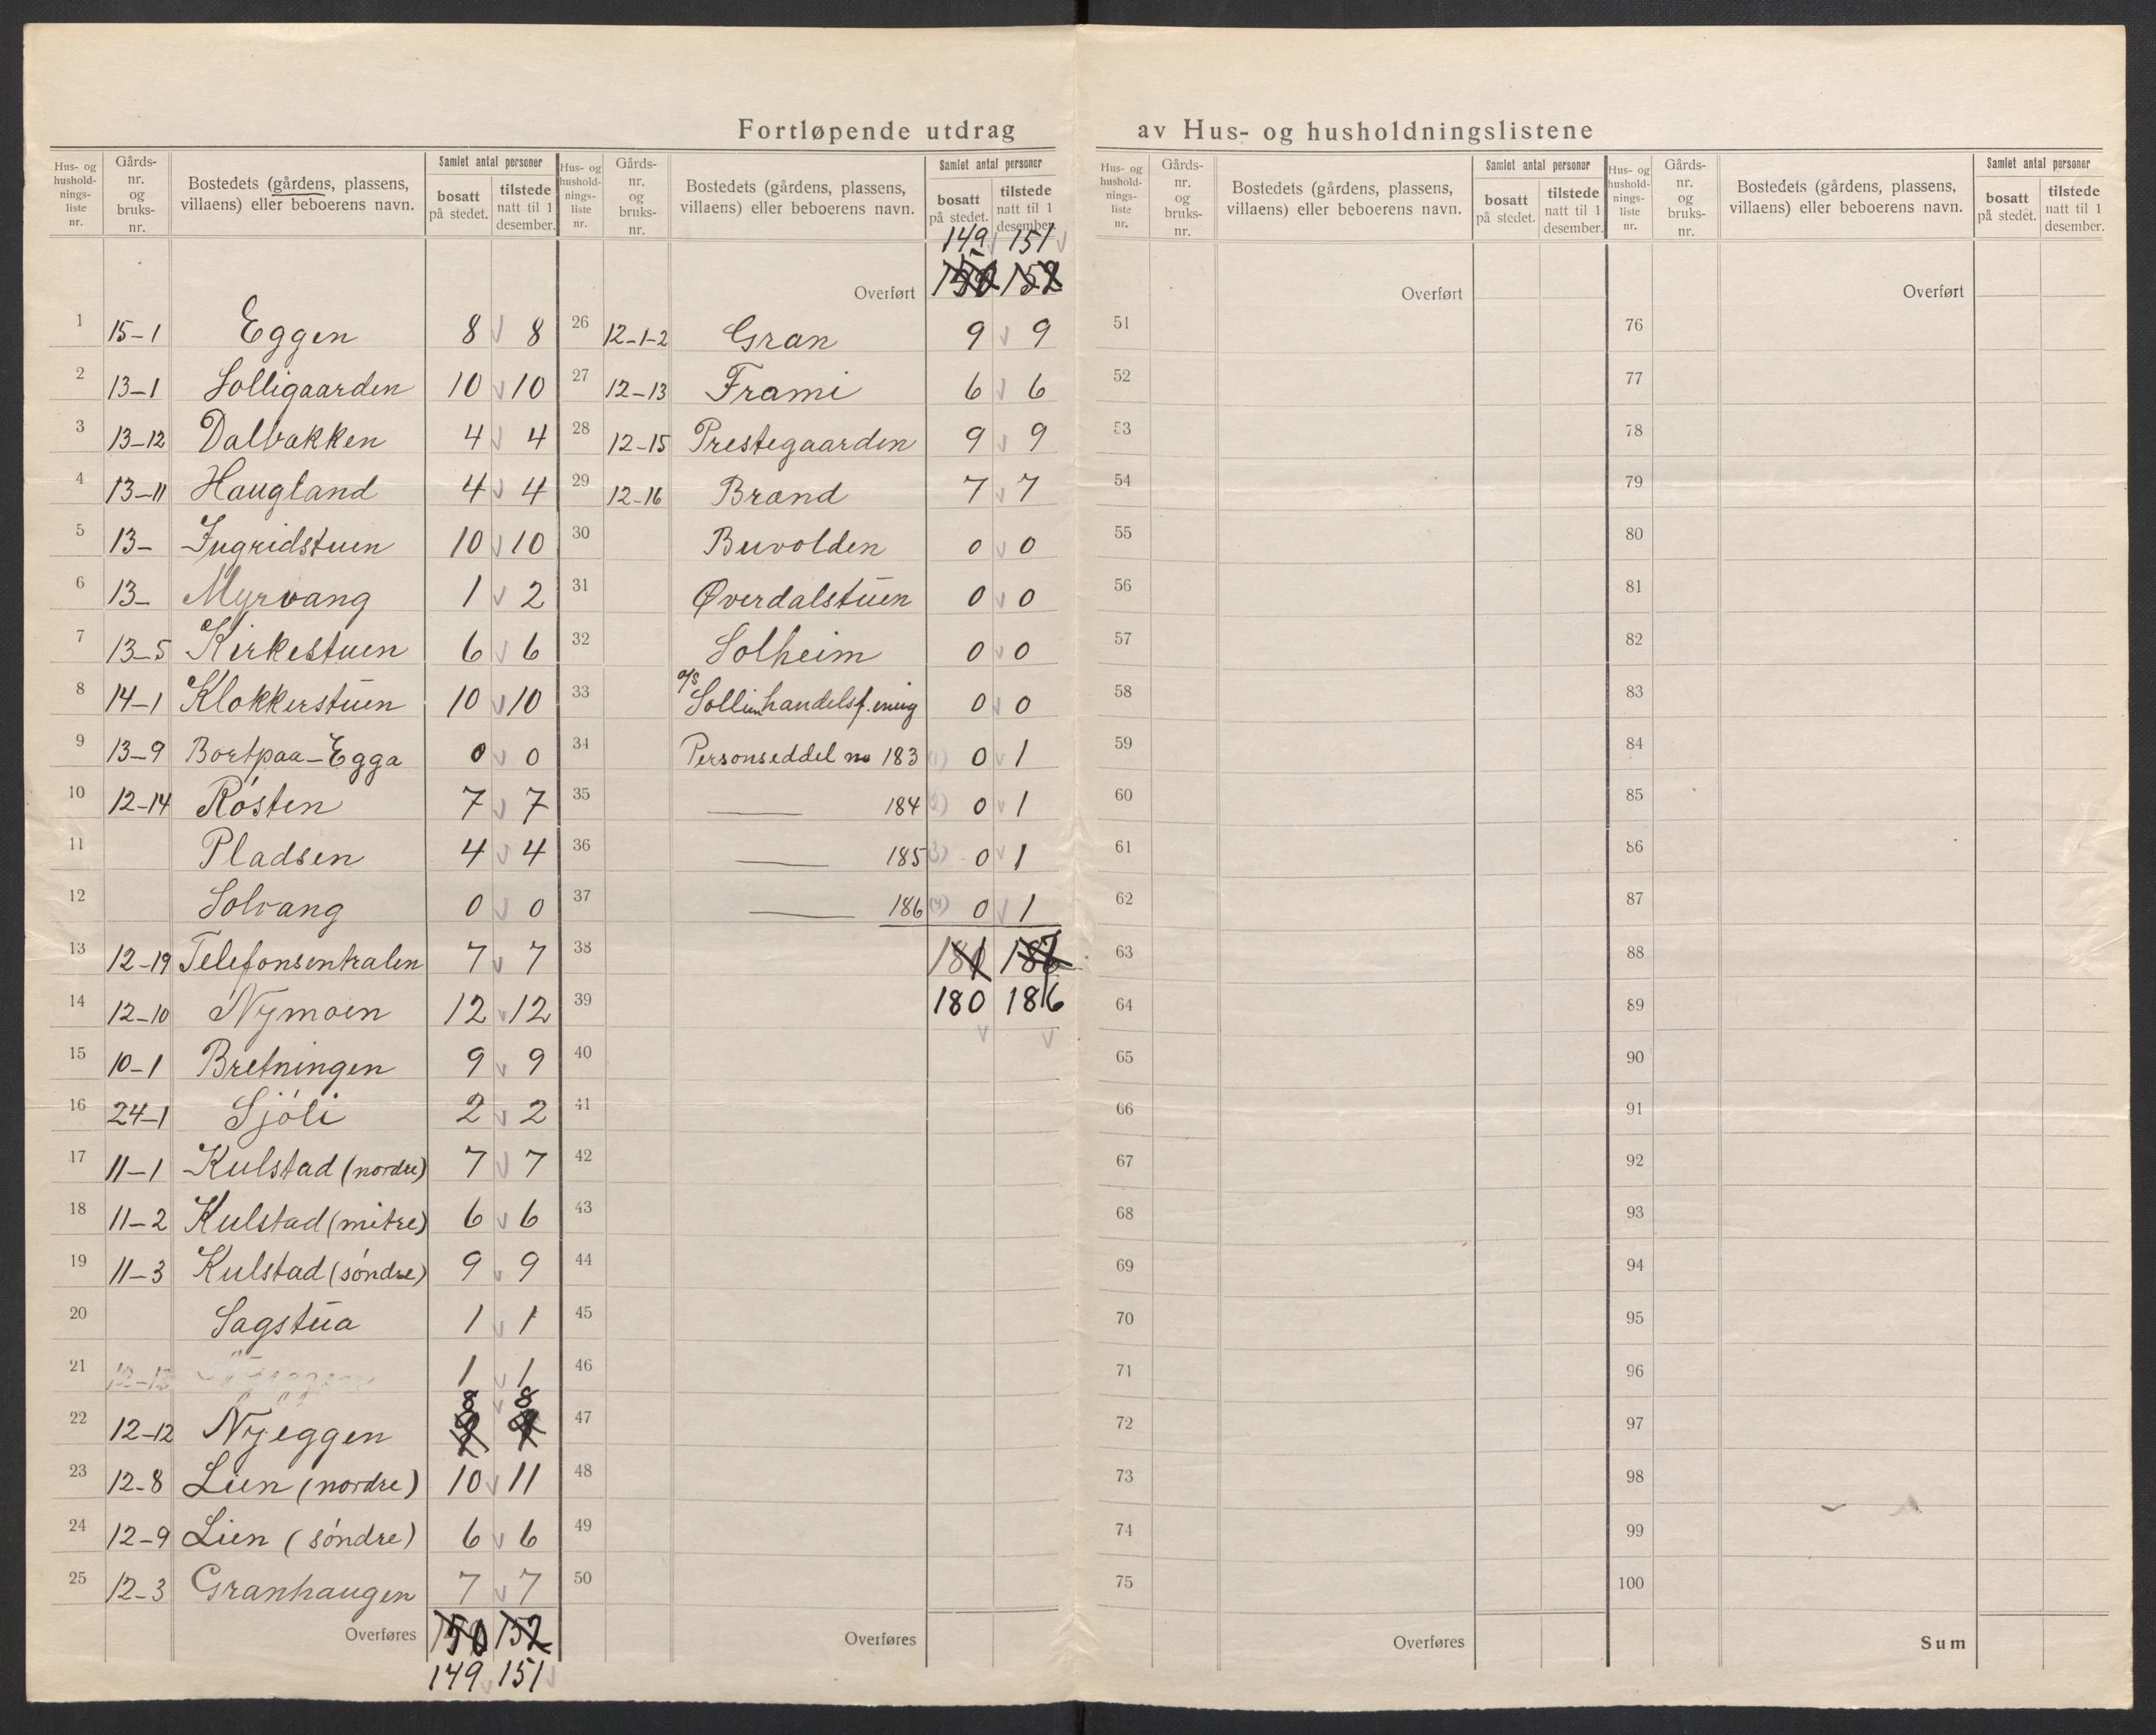 Fortløpende utdrag av Hus- og husholdningslistene
Hus- og hushold-nings-liste nr. Gårds-nr. og bruks-nr. Bostedets (gårdens, plassens, villaens) eller beboerens navn. Samlet antal personer bosatt på stedet. tilstede natt til 1 desember.
1 15-1 Eggen 8 v 8
2 13-1 Solligaarden 10 v 10
3 13-12 Dalbakken 4 v 4
4 13-11 Haugland 4 v 4
5 13- Ingridstuen 10 v 10
6 13- Myrvang 1 v 2
7 13-5 Kirkestuen 6 v 6
8 14-1 Klokkerstuen 10 v 10
9 13-9 Bortpaa-Egga 0 v 0
10 12-14 Rósten 7 v 7
11 Pladsen 4 v 4
12 Solvang 0 v 0
13 12-19 Telefonsentralen 7 v 7
14 12-10 Nymoen 12 v 12
15 10-1 Bretningen 9 v 9
16 24-1 Sjóli 2 v 2
17 11-1 Kulstad (nordre) 7 v 7
18 11-2 Kulstad (mitre) 6 v 6
19 11-3 Kulstad (sóndre) 9 v 9
20 Sagstua 1 v 1
21 12-12 1 v 1
8 v 8
22 12-12 Nyeggen
23 12-8 Lien (nordre) 10 v 11
24 12-9 Lien (sóndre) 6 v 6
25 12-3 Granhaugen 7 v 7
Overføres 150 152
149 v 151 v
Hus- og hushold-nings-liste nr. Gårds-nr. og bruks-nr. Bostedets (gårdens, plassens, villaens) eller beboerens navn. Samlet antal personer bosatt på stedet. tilstede natt til 1 desember.
149 v 151 v
Overført 150 152
26 12-1-2 Gran 9 v 9
27 12-13 Frami 6 v 6
28 12-15 Prestegaarden 9 v 9
29 12-16 Brand 7 v 7
30 Buvolden 0 v 0
31 Øverdalstuen 0 v 0
32 Solheim 0 v 0
33 a/s Sollien handelsf.ening 0 v 0
34 Personseddel no 183 (1) 0 v 1
35 — 184 (2) 0 v 1
36 — 185 (3) 0 v 1
37 — 186 (4) 0 v 1
38 181 187
39 180 186
v v
40
41
42
43
44
45
46
47
48
49
50
Overføres
Hus- og hushold-nings-liste nr. Gårds-nr. og bruks-nr. Bostedets (gårdens, plassens, villaens) eller beboerens navn. Samlet antal personer bosatt på stedet. tilstede natt til 1 desember.
Overført
51
52
53
54
55
56
57
58
59
60
61
62
63
64
65
66
67
68
69
70
71
72
73
74
75
Overføres
Hus- og hushold-nings-liste nr. Gårds-nr. og bruks-nr. Bostedets (gårdens, plassens, villaens) eller beboerens navn. Samlet antal personer bosatt på stedet. tilstede natt til 1 desember.
Overført
76
77
78
79
80
81
82
83
84
85
86
87
88
89
90
91
92
93
94
95
96
97
98
99
100
Sum